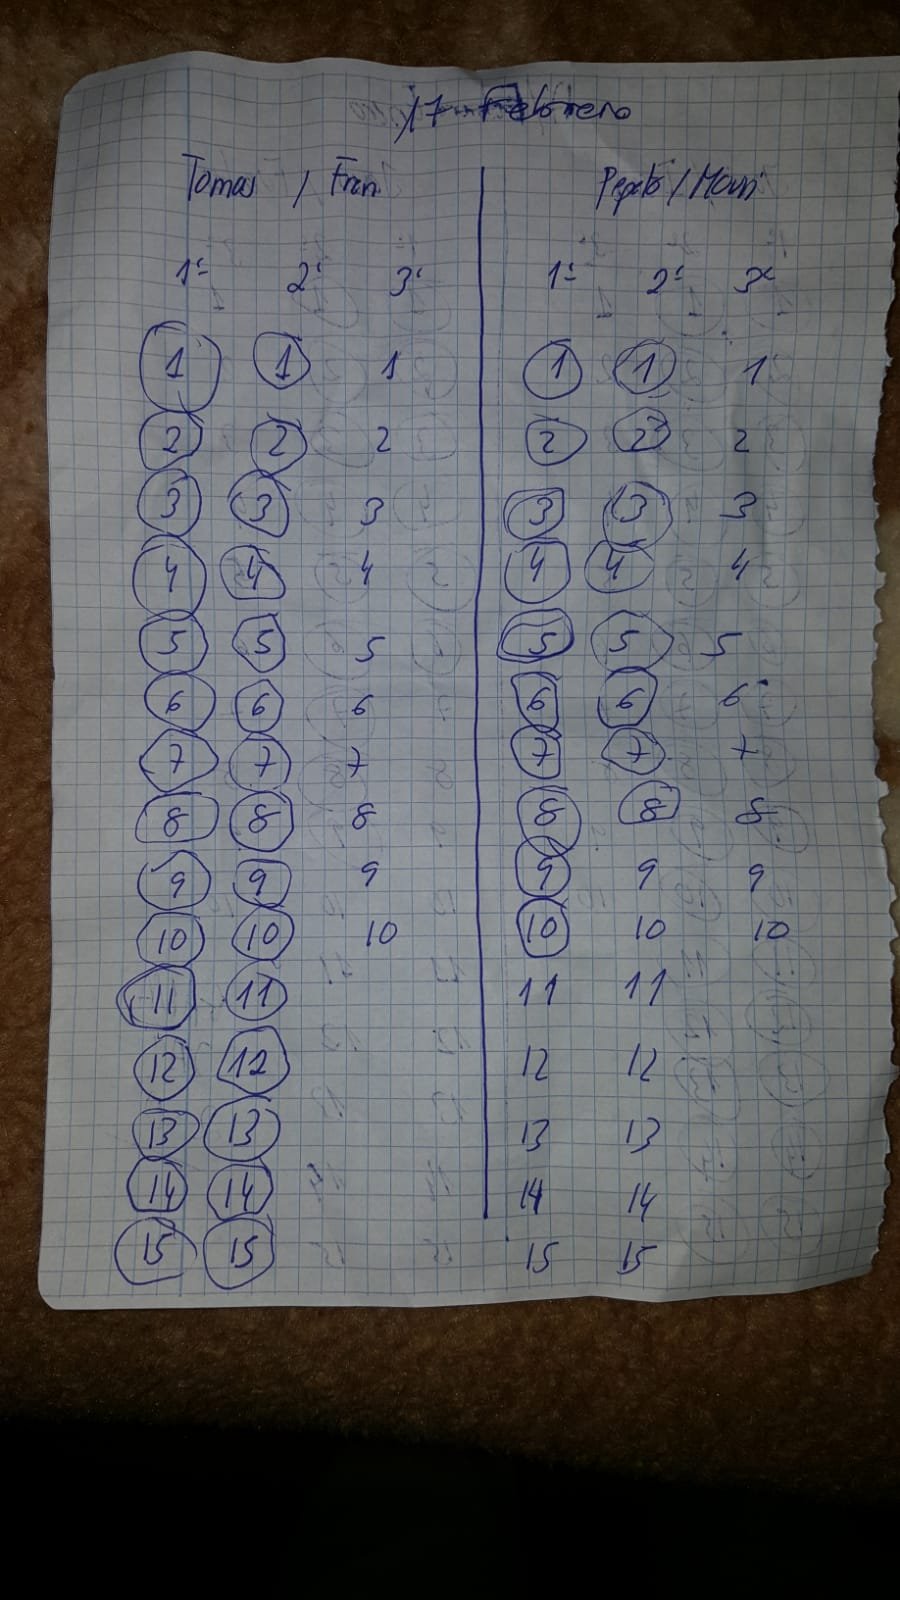 17 Febrero
Tomas / Fran Pepeto / Mauri
1º 2º 3º 1º 2º 3º
1 1 1 1 1 1
2 2 2 2 2 2
3 3 3 3 3 3
4 4 4 4 4 4
5 5 5 5 5 5
6 6 6 6 6 6
7 7 7 7 7 7
8 8 8 8 8 8
9 9 9 9 9 9
10 10 10 10 10 10
11 11 11 11
12 12 12 12
13 13 13 13
14 14 14 14
15 15 15 15